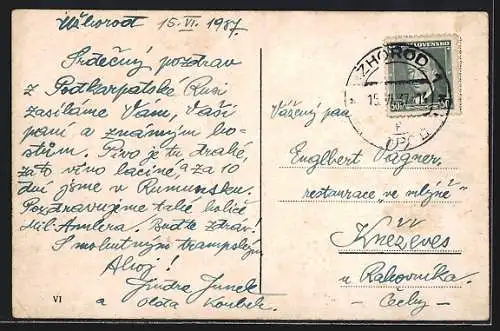 Užhorod 15. VI. 1937
Srdečný pozdrav
z Podkarpatské Rusi
zasíláme Vám, Vaší
paní a známým ho-
stům. Pivo je tu drahé,
za to víno laciné, a za 10
dní jsme v Rumunsku.
Pozdravujeme také holiče
Amlera. Buďte zdráv!
S mohutným trampským
Ahoj!
Jindra
a Koubek
VI
ČESKOSLOVENSKO
50
50
UŽHOROD 1
15. VI. 37
Vážený pan
Englbert Vágner,
restaurace „ve mlýně“
Kněževes
u Rakovníka.
Čechy